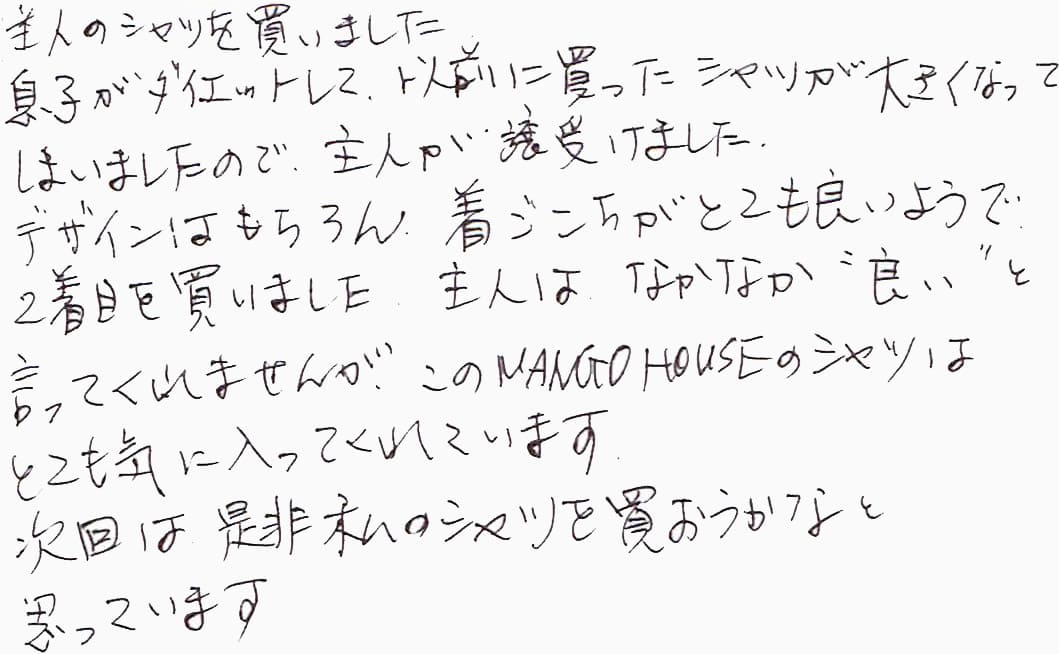 主人のシャツを買いました
息子がダイエットして、以前に買ったシャツが大きくなって
しまいましたので、主人が譲受けました。
デザインはもちろん、着ごこちがとても良いようで
2着目を買いました。主人は、なかなか“良い”と
言ってくれませんが、このMANGO HOUSEのシャツは
とても気に入ってくれています。
次回は是非私のシャツを買おうかなと
思っています